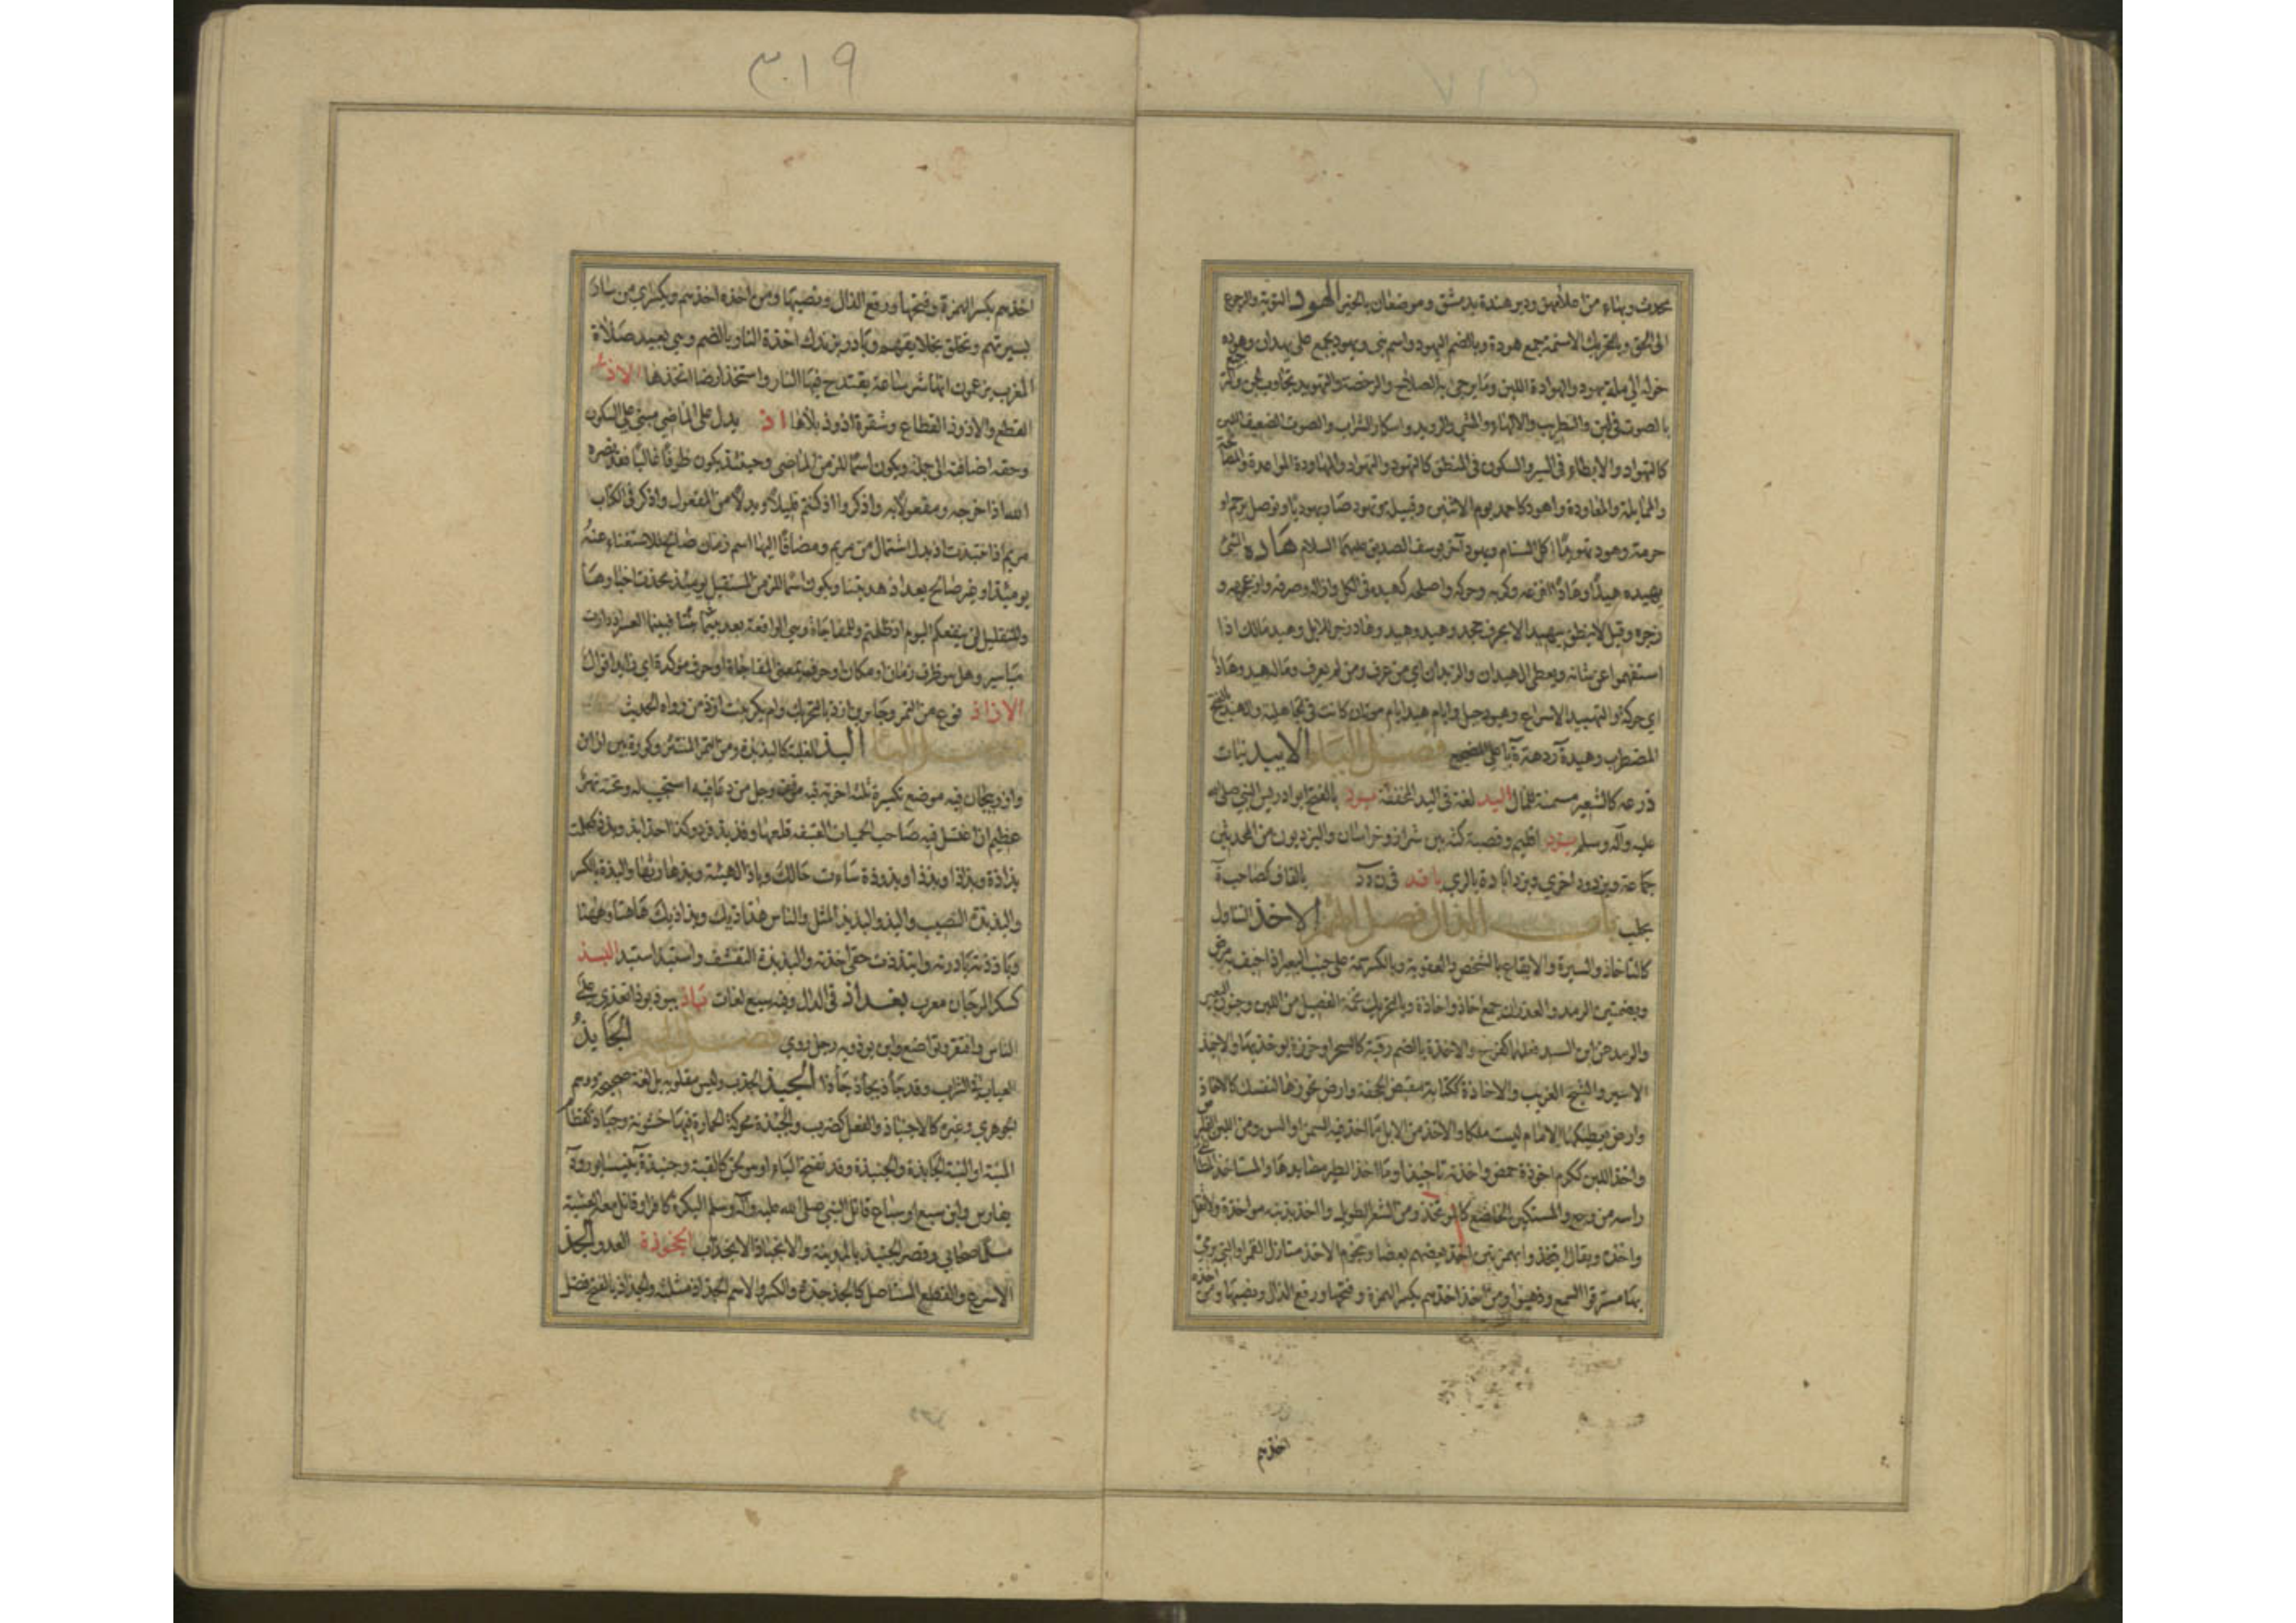 ٣١٩
يحدث وبناء من اعلانهن ودير هندة بدمشق وموضعان بالحيرة الهود التوبة والرجوع
الى الحق وبالتحريك الاسنمة جمع هودة وبالضم اليهود واسم نبي ويهود يجمع على يهدان وهوده
حوله الى ملة يهود والهوادة اللين وما يرجى به الصلاح والرخصة والتهويد تجاوب الجن
بالصوت في لين والتطريب والالهاء والمشي الرويد واسكار الشراب والصوت الضعيف اللين
كالتهواد والابطاء في السير والسكون في المنطق كالتهود والتهواد والمهاودة الموادعة
والممايلة والمعاودة واهود كاحمد يوم الاثنين وقبيلة وتهود صار يهوديا وتوصل برحم او
حرمة وهود تهويدا اكل السنام ويهودا اخو يوسف الصديق عليهما السلام هاده الشئ
يهيده هيدا وهادا افزعه وكربه وحركه واصلحه كهيده في الكل وازاله وصرفه وازعجه و
زجره وقيل لا ينطق بيهيد الا بحرف جحد وهيد وهيد وهاد زجر للابل وهيد مالك اذا
استفهموا عن شانه ويعطي الهيدان والزيدان اي من عرف ومن لم يعرف وماله هيد وهاد
اي حركة والتهييد الاسراع وهيود جبل وايام هيد ايام موتان كانت في الجاهلية والهيد
المضطرب وهيدة ردهة باعلى المضجع فصل الياء الابيد نبات
زرعه كالشعير مسمنة للمال اليد لغة في اليد المخففة يرد بالفتح ابو ادريس النبي صلى الله
عليه وآله وسلم يزد اقليم وقصبته كثه بين شيراز وخراسان واليزديون من المحدثين
جماعة ويزدود اخرى ويزداباد ة بالري ياقد بالقاف كصاحب ة
بحلب باب الذال فصل الهمزة الاخذ التناول
كالتاخاذ والسيرة والايقاع بالشخص والعقوبة وبالكسر سمة على جنب البعير اذا خيف به مرض
وبضمتين الرمد والغدران جمع اخاذ واخاذة وبالتحريك تخمة الفصيل من اللبن وجنون البعير
والرمد عن ابن السيد فعلهما كفرح والاخذة بالضم رقية كالسحر او خرزة يؤخذ بها والاخيذ
الاسير والشيخ الغريب والاخاذة ككتابة مقبض الحجفة وارض تحوزها لنفسك كالاخاذ
وارض يعطيكها الامام ليست ملكا والآخذ من الابل ما اخذ فيه السمن او السن ومن اللبن القارص
واخذ اللبن ككرم اخوذة حمض واخذته تاخيذا ومآخذ الطير مصايدها والمستاخذ المطاطئ
راسه من وجع والمستكين الخاضع كالمؤتخذ ومن الشعر الطويل وآخذه بذنبه مواخذة ولا تقل
واخذه ويقال ايتخذوا بهمزتين اخذ بعضهم بعضا ونجوم الاخذ منازل القمر او التي يرمى
بها مسترقوا السمع وذهبوا ومن اخذ اخذهم بكسر الهمزة وفتحها ورفع الذال ونصبها ومن اخذه
اخذهم
اخذهم بكسر الهمزة وفتحها ورفع الذال ونصبها ومن اخذه اخذهم ويكسر اي من سار
بسيرتهم وتخلق بخلايقهم وبادر بزندك اخذة النار بالضم وهي بعيد صلاة
المغرب يزعمون انها شر ساعة يقتدح فيها النار واستخذ ارضا اتخذها الاذ
القطع والاذوذ القطاع وشفرة اذوذ بلا هاء اذ يدل على الماضي مبني على السكون
وحقه اضافته الى جملة ويكون اسما للزمن الماضي وحينئذ يكون ظرفا غالبا فقد نصره
الله اذ اخرجه ومفعولا به واذكروا اذ كنتم قليلا وبدلا من المفعول واذكر في الكتاب
مريم اذ انتبذت اذ بدل اشتمال من مريم ومضافا اليها اسم زمان صالح للاستغناء عنه
يومئذ او غير صالح بعد اذ هديتنا ويكون اسما للزمن المستقبل يومئذ تحدث اخبارها
وللتعليل لن ينفعكم اليوم اذ ظلمتم وللمفاجاة وهي الواقعة بعد بينا وبينما فبينما العسر اذ دارت
مياسير وهل هو ظرف زمان او مكان او حرف بمعنى المفاجاة او حرف مؤكد اي زايد اقوال
الازاذ نوع من التمر وجابر بن ازذ بالتحريك من رواة الحديث
فصل الباء البذ الغلبة كالبذبذة ومن التمر المنتثر وكورة بين اران
واذربيجان فيه موضع تكسيره ثلثة اجربة فيه موقف رجل من دعا فيه استجيب له وتحته نهر
عظيم ان اغتسل فيه صاحب الحميات العتيقة قلعها وفذ بذ فرد وكذا احذ ابذ وبذذت كعلمت
بذاذة وبذاذا وبذذا وبذوذة ساءت حالك وباذ الهيئة وبذها رثها والبذة بالكسر
والبذيذة النصيب والبذ والبذيذ المثل والناس هذاذيك وبذاذيك هاهنا وههنا
وباذذته بادرته وابتذذت حقي اخذته والبذبذة التقشف واستبذ استبد البسذ
كسكر المرجان معرب بغداذ في الدال وفيه سبع لغات باذ يبوذ بوذا تعدى على
الناس وافتقر وتواضع وابن بوذويه رجل روى فصل الجيم الجايذ
العباب في الشراب وقد جاذ يجاذ جاذا الجبذ الجذب وليس مقلوبه بل لغة صحيحة ووهم
الجوهري وغيره كالاجتباذ والفعل كضرب والجبذة محركة الجمارة فيها خشونة وجباذ كقطام
المنية او النية الجابذة والجنبذة وقد تفتح الباء او هو لحن كالقبة وجنبذة بنيسابور وة
بفارس وابن سبيع او سباع قاتل النبي صلى الله عليه وآله وسلم البكرة كافرا وقاتل معه العشية
مسلما صحابي وقصر الجنبذ بالمدينة والانجباذ الانجذاب الجخوذة العدو الجذ
الاسراع والقطع المستاصل كالجذجذة والكسر والاسم الجذاذ مثلثة والجذاذ بالفتح فصل